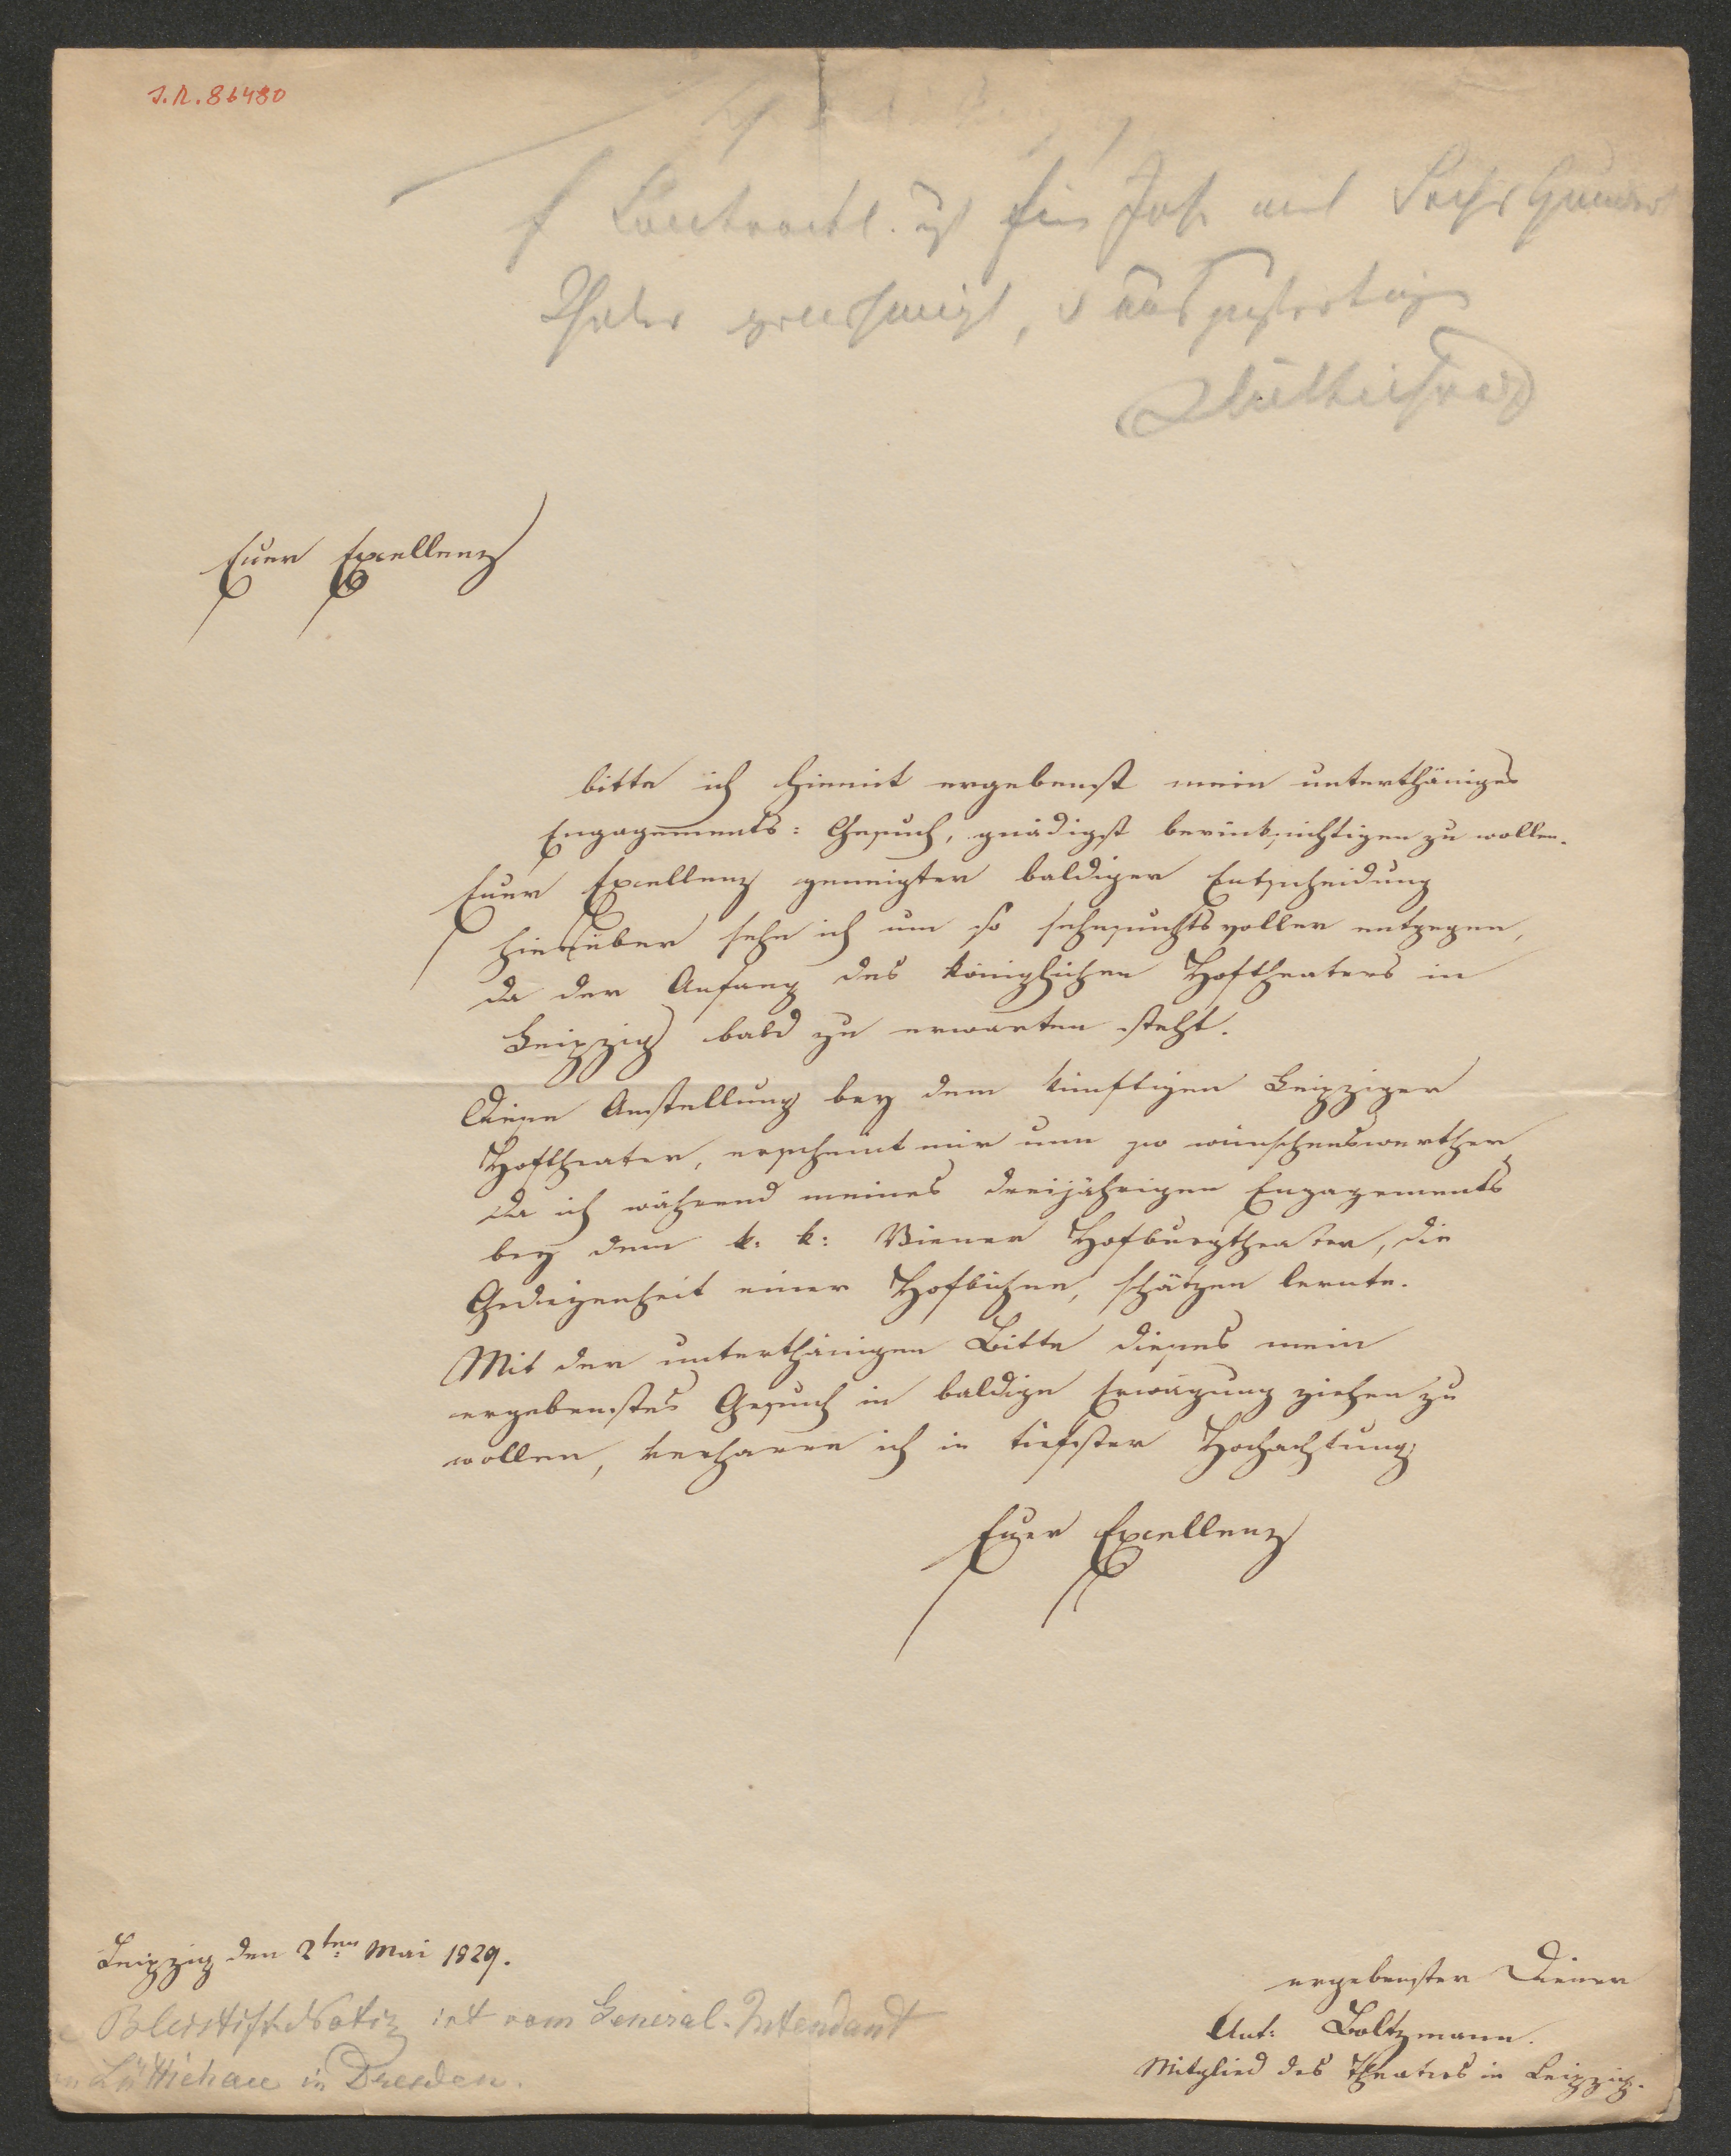 J.N. 86480
Contract. ist ein Jahr mit Sechs Hundert
Thaler genehmigt, auszufertigen
Lüttichau
Euer Excellenz
bitte ich hiemit ergebenst mein unterthäniges
Engagements: Gesuch, gnädigst berücksichtigen zu wollen.
Euer Excellenz geneigter baldiger Entscheidung
hierüber sehe ich um so sehnsuchtsvoller entgegen,
da der Anfang des königlichen Hoftheaters in
Leipzig bald zu erwarten steht.
Diese Anstellung bey dem künftigen Leipziger
Hoftheater, erscheint mir um so wünschenswerther
da ich während meines dreijährigen Engagements
bey dem k: k: Wiener Hofburgtheater, die
Gediegenheit einer Hofbühne, schätzen lernte.
Mit der unterthänigen Bitte dieses mein
ergebenstes Gesuch in baldige Erwägung ziehen zu
wollen, verharre ich in tiefster Hochachtung
Euer Excellenz
Leipzig den 2ten Mai 1829.
ergebenster Diener
Ant: Boltzmann.
Mitglied des Theaters in Leipzig.
Bleistift Notiz ist vom General-Intendant
Lüttichau in Dresden.